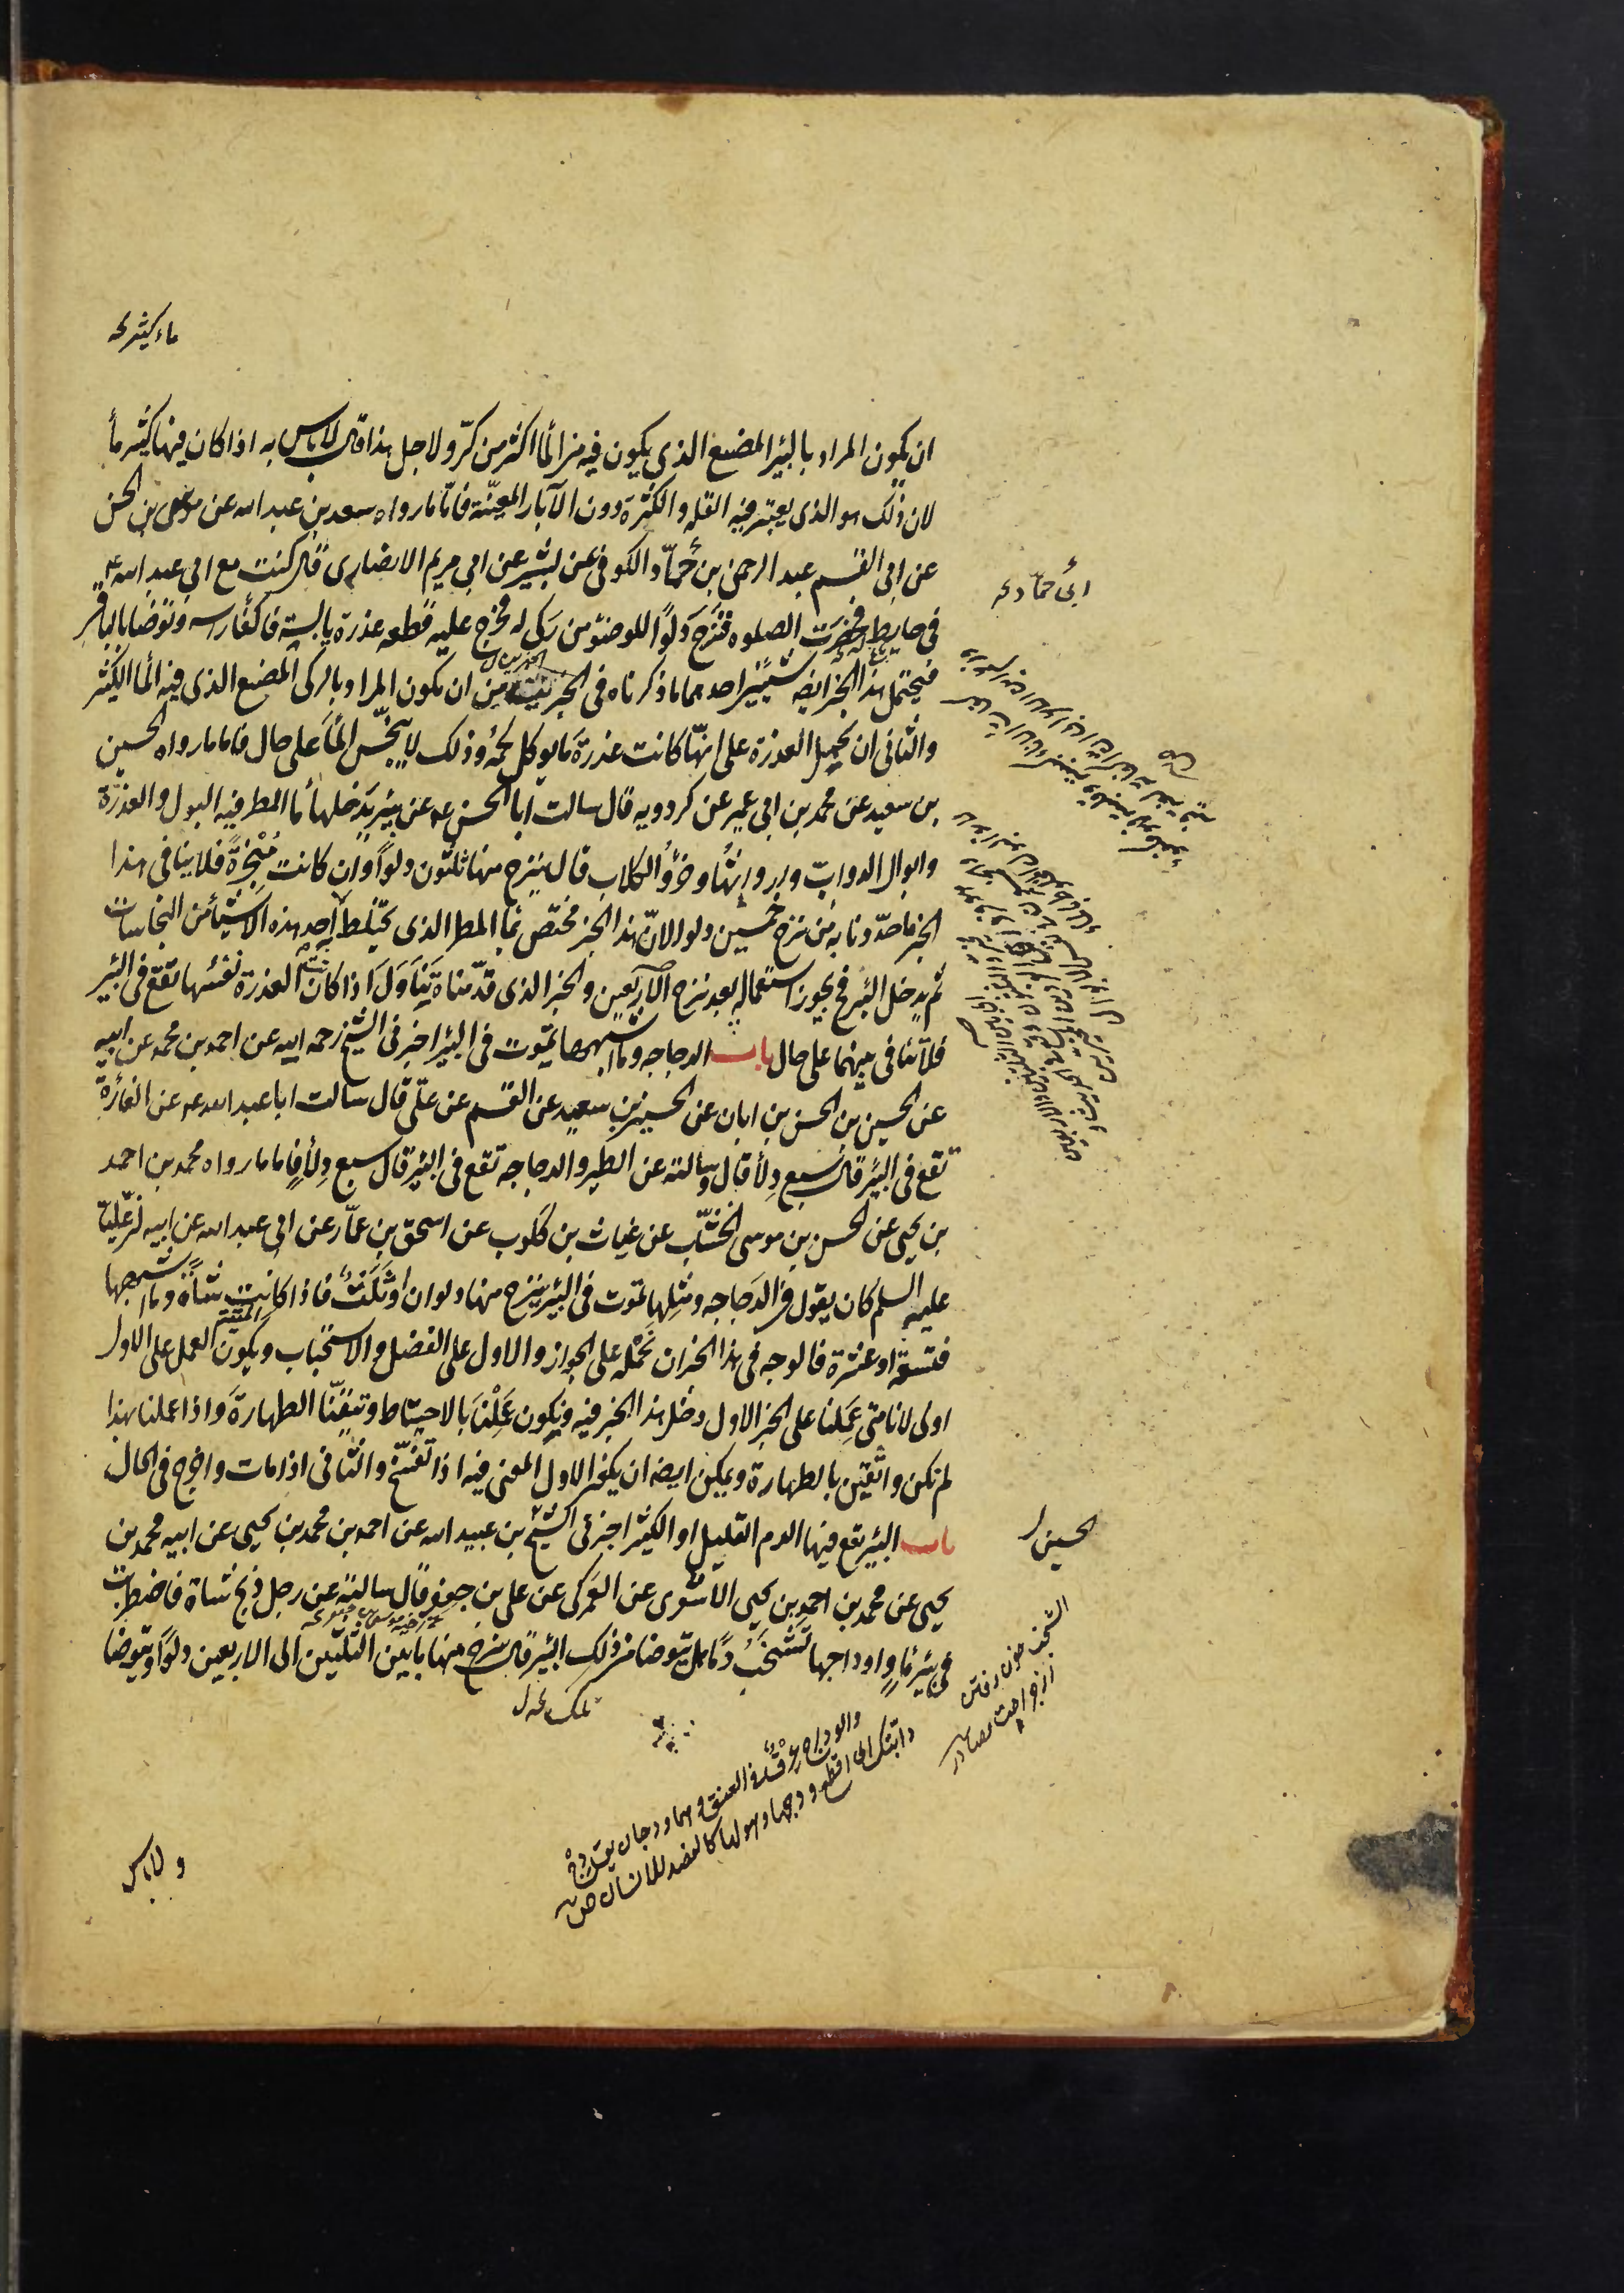 ماء كثير خ
ان يكون المراد بالبئر المصنع الذى يكون فيه من الماء اكثر من كرّ ولاجل هذا قال لا باس به اذا كان فيها كثير ماء
لان ذلك هو الذى يعتبر فيه القله والكثرة دون الآبار المعيّنة فامّا ما رواه سعد بن عبد الله عن موسى بن الحسن
عن ابى القسم عبد الرحمن بن حمّاد الكوفى عن بشير عن ابى مريم الانصارى قال كنت مع ابى عبد الله ع
ابى حمّاد خ
فى حايط له فحضرت الصلوه فنزح دلوًا للوضوء من ركى له فخرج عليه قطعه عذرة يابسة فاكفأ راسه وتوضأ بالباقى
فيحتمل هذا الخبر ايضه شيئين احدهما ما ذكرناه فى الخبر من ان يكون المراد بالركى المصنع الذى فيه الماء الكثير
والثانى ان يحمل العذرة على انهّا كانت عذرة ما يوكل لحمه وذلك لا ينجّس الماء على حال فاما ما رواه الحسين
بن سعيد عن محمد بن ابى عمير عن كردويه قال سالت ابا الحسن ع عن بئر يدخلها ماء المطر فيه البول والعذرة
وابوال الدوابّ وارواثها وخرؤ الكلاب قال ينزح منها ثلثون دلوًا وان كانت مبخرة فلا ينافى هذا
الخبر ما حدّدنا به من نزح خمسين دلوا لانّ هذا الخبر مختص بماء المطر الذى يختلط به احد هذه الاشياء من النجاسات
ثم يدخل البئر فح يجوز استعماله بعد نزح الاربعين والخبر الذى قدّمناه يتناول اذا كانت العذرة نفسها تقع فى البئر
فلا تنافى بينهما على حال باب الدجاجه وما اشبهها تموت فى البئر اخبرنى الشيخ رحمه الله عن احمد بن محمد عن ابيه
عن الحسين بن الحسن بن ابان عن الحسين بن سعيد عن القسم عن على قال سالت ابا عبد الله ع عن الفأرة
تقع فى البئر قال سبع دلاء قال وسالته عن الطير والدجاجه تقع فى البئر قال سبع دلاء فاما ما رواه محمد بن احمد
بن يحيى عن الحسن بن موسى الخشّاب عن غياث بن كلوب عن اسحق بن عمّار عن ابى عبد الله عن ابيه انّ عليّا
عليه السلم كان يقول فى الدجاجه ومثلها تموت فى البئر ينزح منها دلوان او ثلثة فاذا كانت شاة وما اشبهها
فتسعة او عشرة فالوجه فى هذا الخبر ان نحمله على الجواز والاول على الفضل والاستحباب ويكون العمل على الاول
اولى لانا متى عملنا على الخبر الاول دخل هذا الخبر فيه ويكون عملنا بالاحتياط وتيقنّا الطهارة واذا عملنا بهذا
لم نكن واثقين بالطهارة ويمكن ايضه ان يكون الاول المعنى فيه اذا تفسّخ والثانى اذا مات واخرج فى الحال
باب البئر يقع فيها الدم القليل او الكثير اخبرنى الشيخ بن عبيد الله عن احمد بن محمد بن يحيى عن ابيه محمد بن
الحسين ل
يحيى عن محمد بن احمد بن يحيى الاشعرى عن العمركى عن على بن جعفر قال سالته عن رجل ذبح شاة فاضطربت
فى بئر ماء واوداجها تشخب دمًا هل يتوضا من ذلك البئر قال ينزح منها ما بين الثلثين الى الاربعين دلوًا ويتوضا
تلك خ ل
الشخب خون رفتن
والوداج عرق فى العنق وهما ودجان يقال دج
دابتك اى اقطع ودجها وهو لها كالفصد للانسان ص
ولا باس